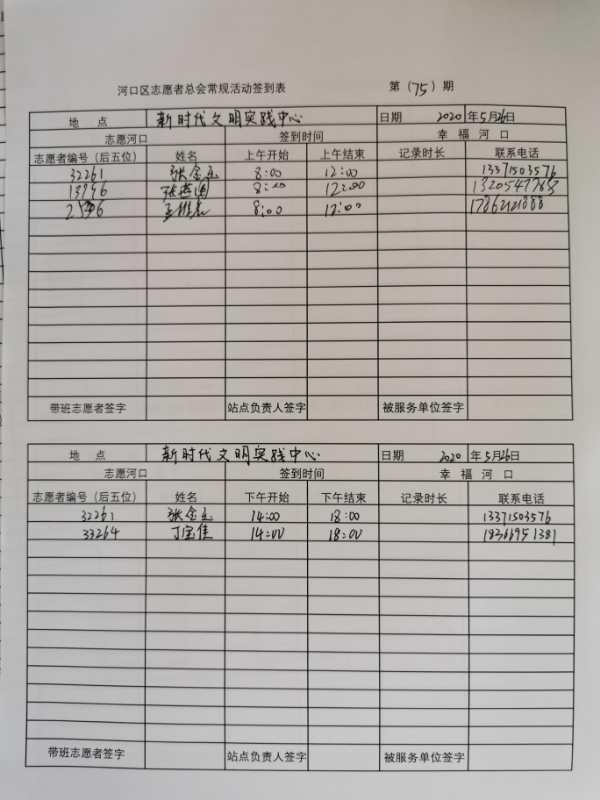 河口区志愿者总会常规活动签到表 第（75）期
地 点 新时代文明实践中心 日期 2020 年5月26日
志愿河口 签到时间 幸 福 河 口
志愿者编号（后五位） 姓名 上午开始 上午结束 记录时长 联系电话
32261 张金玉 8:00 12:00 13371503576
8:00 12:00
8:00 12:00
带班志愿者签字 站点负责人签字 被服务单位签字
地 点 新时代文明实践中心 日期 2020 年5月26日
志愿河口 签到时间 幸 福 河 口
志愿者编号（后五位） 姓名 下午开始 下午结束 记录时长 联系电话
32261 张金玉 14:00 18:00 13371503576
33264 丁宝佳 14:00 18:00 18366951381
带班志愿者签字 站点负责人签字 被服务单位签字